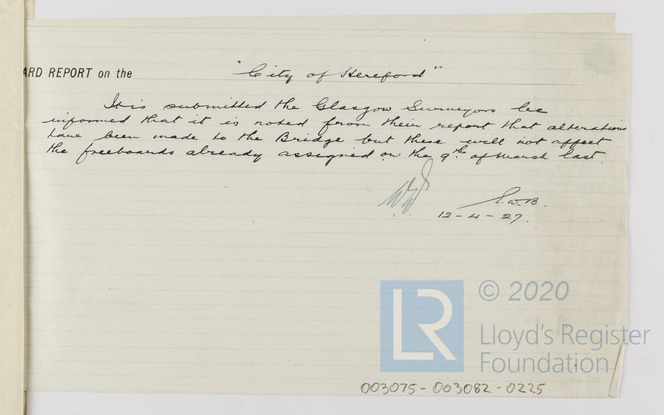 ARD REPORT on the "City of Hereford"
It is submitted the Glasgow Surveyors be
informed that it is noted from their report that alterations
have been made to the Bridge but these will not affect
the freeboards already assigned on the 9th of March last.
S.W.B.
12-4-27.
LR © 2020
Lloyd's Register
Foundation
003075-003082-0225